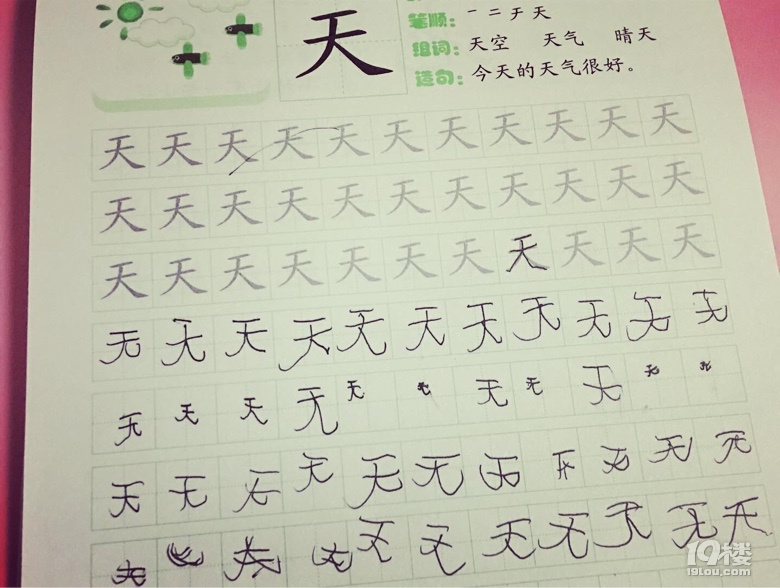 笔顺: 一 二 チ 天
天
组词: 天空 天气 晴天
造句: 今天的天气很好。
天 天 天 天 天 天 天 天 天 天 天
天 天 天 天 天 天 天 天 天 天 天
天 天 天 天 天 天 天 天 天 天 天
无 天 天 天 天 天 天 天 天
天 天 天 无 天 天 天 天
天 天 天 天 天 无 天
天 天 天 天 天
19楼
19lou.com